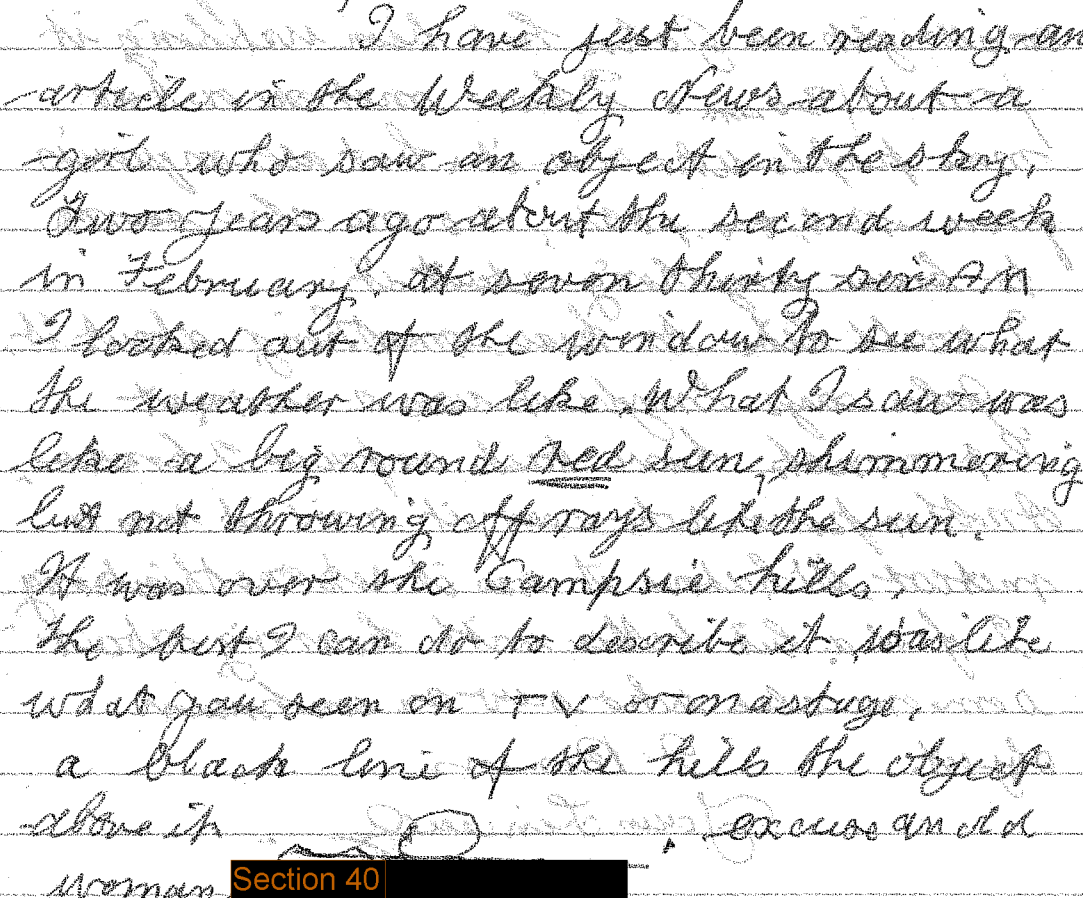 I have just been reading an
article in the Weekly News about a
girl who saw an object in the sky.
Two years ago about the second week
in February. at seven thirty six AM
I looked out of the window to see what
the weather was like. What I saw was
like a big round red sun, shimmering
but not throwing off rays like the sun.
It was over the Campsie hills.
The best I can do to describe it was like
what you seen on TV or on a stage.
a black line of the hills the object
above it. excuse an old
woman
Section 40